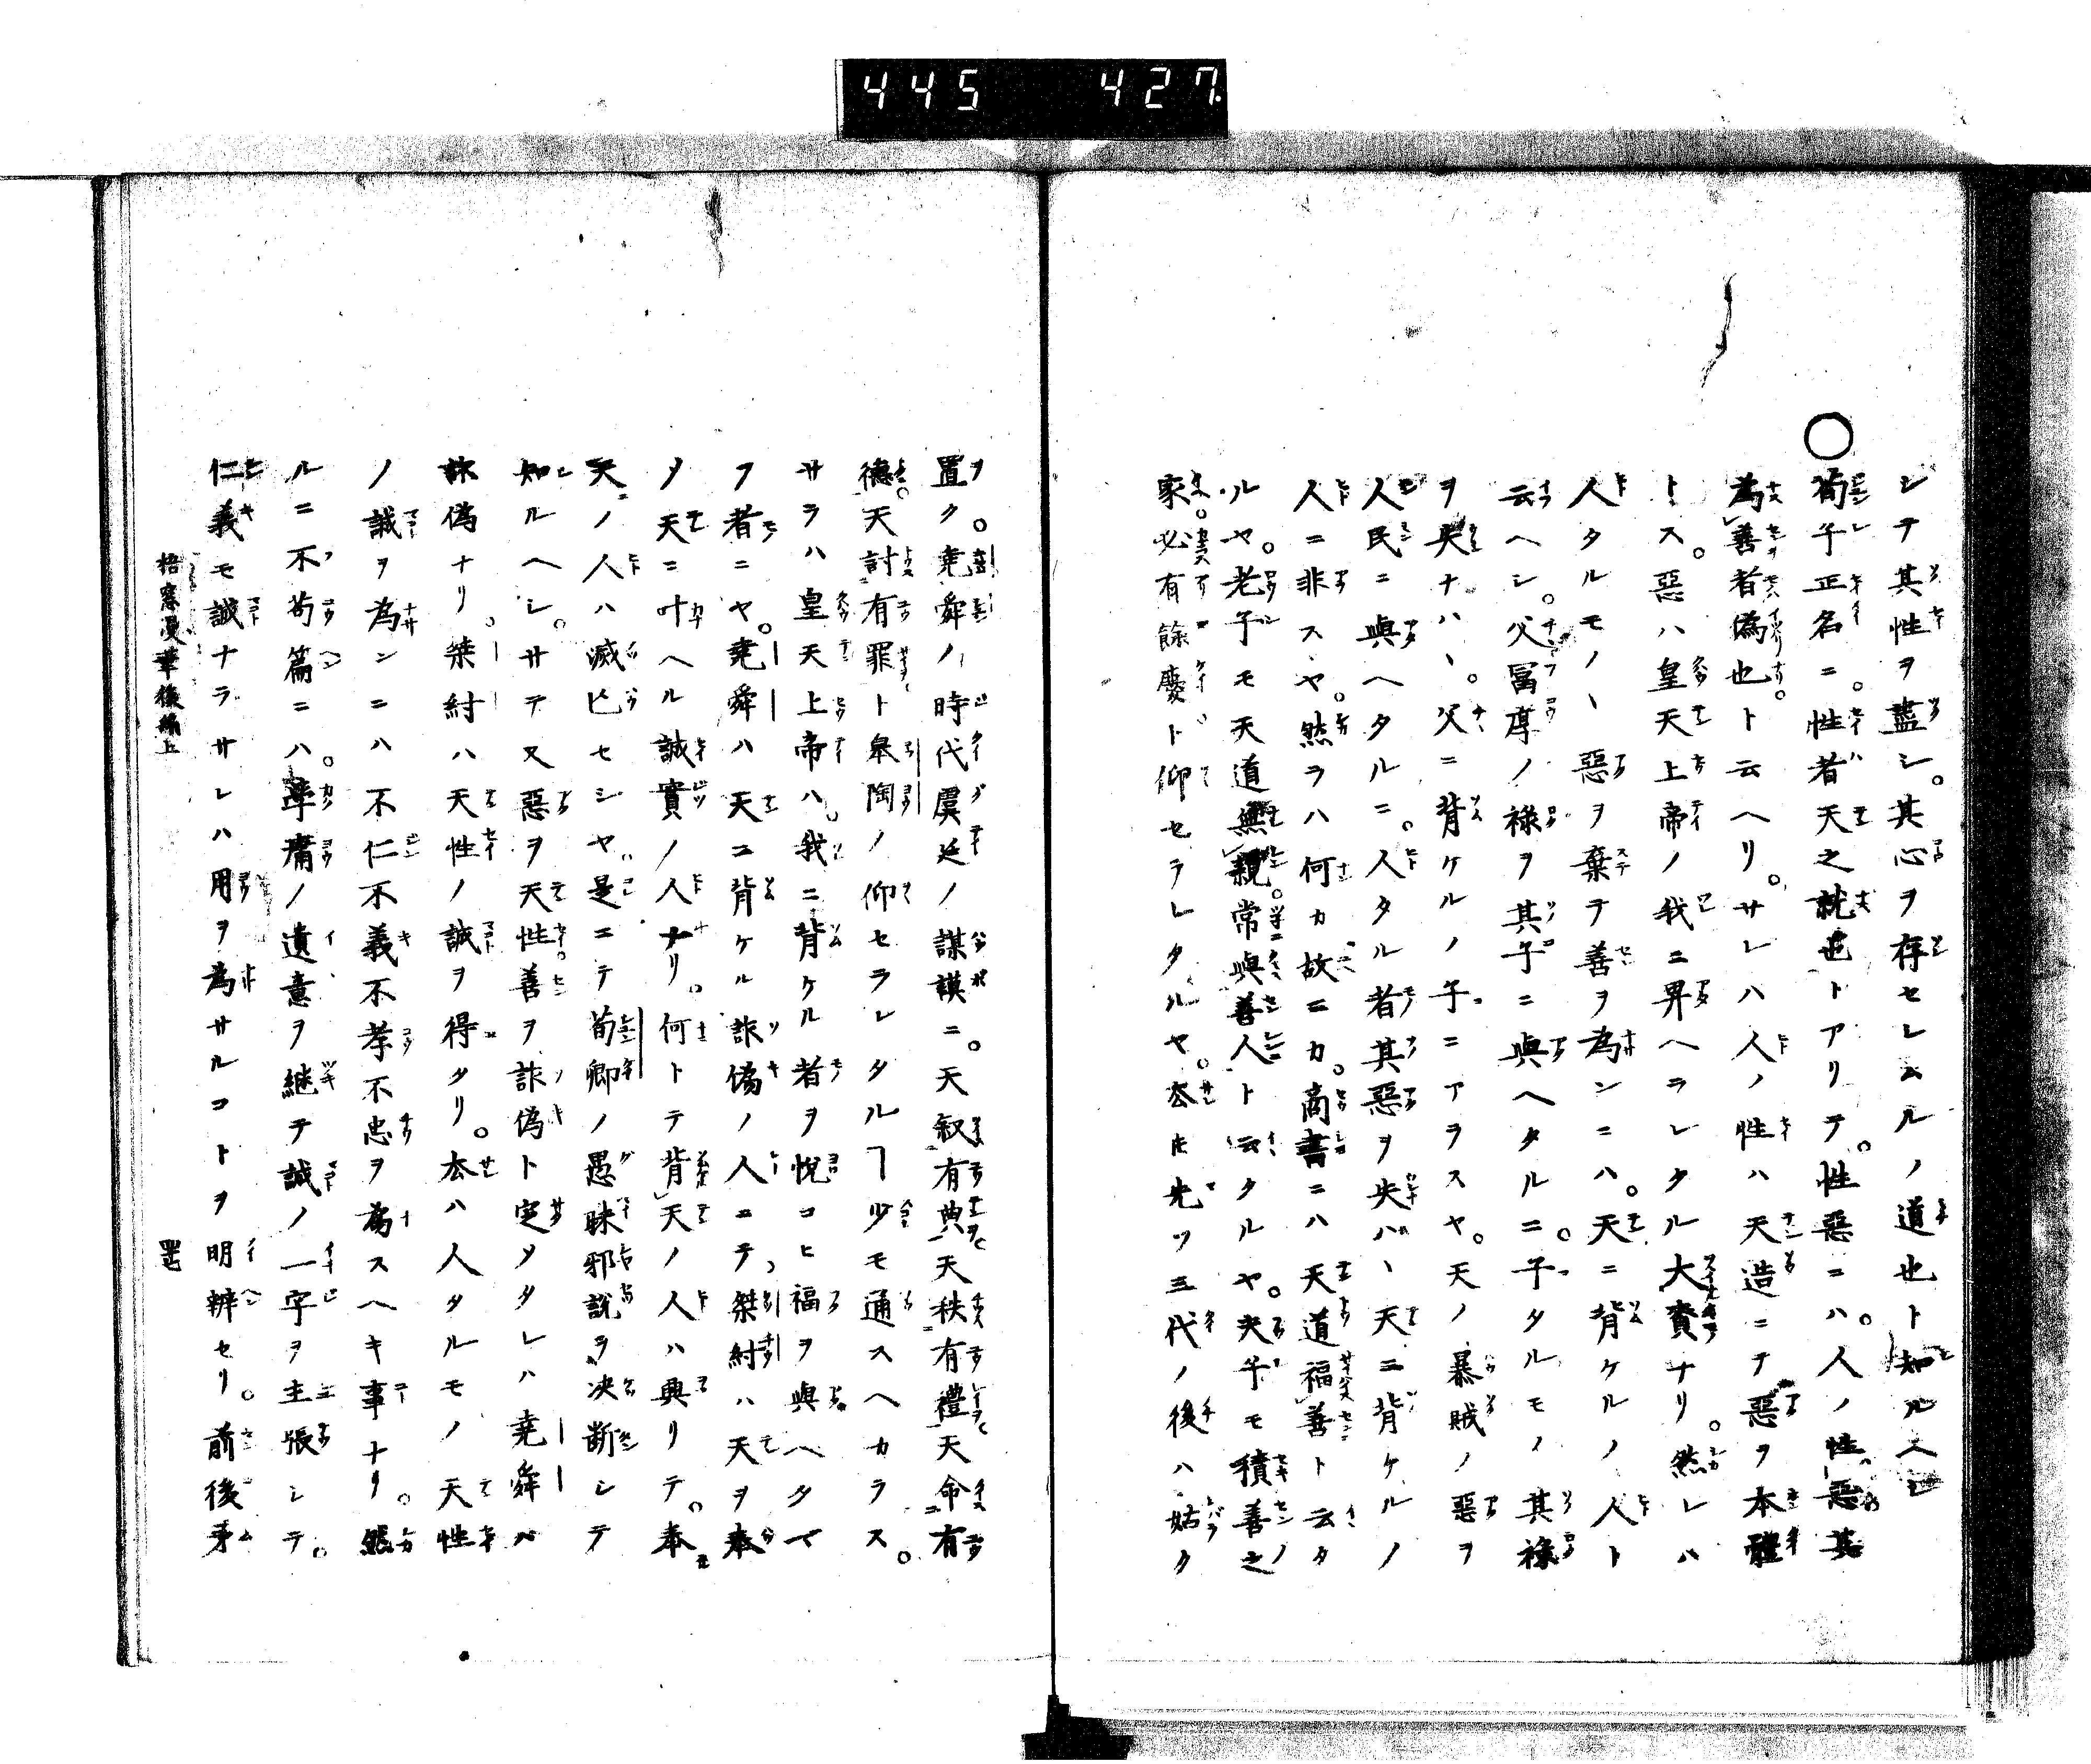 445 427.
シテ其性ヲ盡シ。其心ヲ存セシムルノ道也ト知ルヘシ
○荀子正名ニ。性者天之就也トアリテ。性惡ニハ。人ノ性惡其
為善者偽也ト云ヘリ。サレハ人ノ性ハ天造ニテ惡ヲ本體
トス。惡ハ皇天上帝ノ我ニ畀ヘラレタル大賚ナリ。然レハ
人タルモノヽ惡ヲ棄テ善ヲ為ンニハ。天ニ背ケルノ人ト
云ヘシ。父冨厚ノ祿ヲ其子ニ與ヘタルニ。子タルモノ其祿
ヲ失ナハヽ。父ニ背ケルノ子ニアラスヤ。天ノ暴賊ノ惡ヲ
人民ニ與ヘタルニ。人タル者其惡ヲ失ハヽ天ニ背ケルノ
人ニ非スヤ。然ラハ何カ故ニカ。商書ニハ天道福善ト云タ
ルヤ。老子モ天道無親。常與善人ト云タルヤ。夫子モ積善之
家。必有餘慶ト仰セラレタルヤ。夲圧先ツ三代ノ後ハ姑ク
置ク。堯舜ノ時代虞廷ノ謀謨ニ。天叙有典。天秩有禮。天命有
德。天討有罪ト皐陶ノ仰セラレタルヿ少モ通スヘカラス。
サラハ皇天上帝ハ。我ニ背ケル者ヲ悅コヒ福ヲ與ヘタマ
フ者ニヤ。堯舜ハ天ニ背ケル詐偽ノ人ニテ桀紂ハ天ヲ奉
ノ天ニ叶ヘル誠實ノ人ナリ。何トテ背天ノ人ハ興リテ。奉
天ノ人ハ滅亡セシヤ。是ニテ荀卿ノ愚昧邪說ヲ决断シテ
知ルヘシ。サテ又惡ヲ天性。善ヲ詐偽ト定メタレハ堯舜ハ
詐偽ナリ。桀紂ハ天性ノ誠ヲ得タリ。夲ハ人タルモノ天性
ノ誠ヲ為ンニハ不仁不義不孝不忠ヲ為スヘキ事ナリ。然
ルニ不苟篇ニハ。學庸ノ遺意ヲ継テ誠ノ一字ヲ主張シテ。
仁義モ誠ナラサレハ用ヲ為サルコトヲ明辨セリ。前後矛
梧窓漫筆後編上